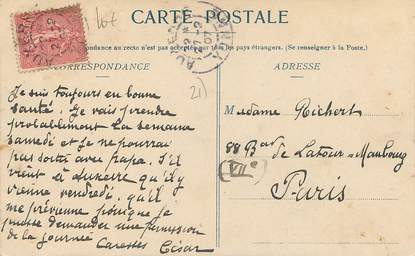 CARTE POSTALE
La Correspondance au recto n'est pas acceptée par tous les pays étrangers. (Se renseigner à la Poste.)
CORRESPONDANCE
ADRESSE
lot
21)
Je suis toujours en bonne
santé. Je vais prendre
probablement la semaine
samedi et je ne pourrai
pas sortir avec papa. S'il
vient à Auxerre qu'il y
vienne vendredi, qu'il
me prévienne puisque je
puisse demander une permission
de la journée Caresses César
Madame Richert
88 Bard de Latour-Maubourg
VIIe
Paris